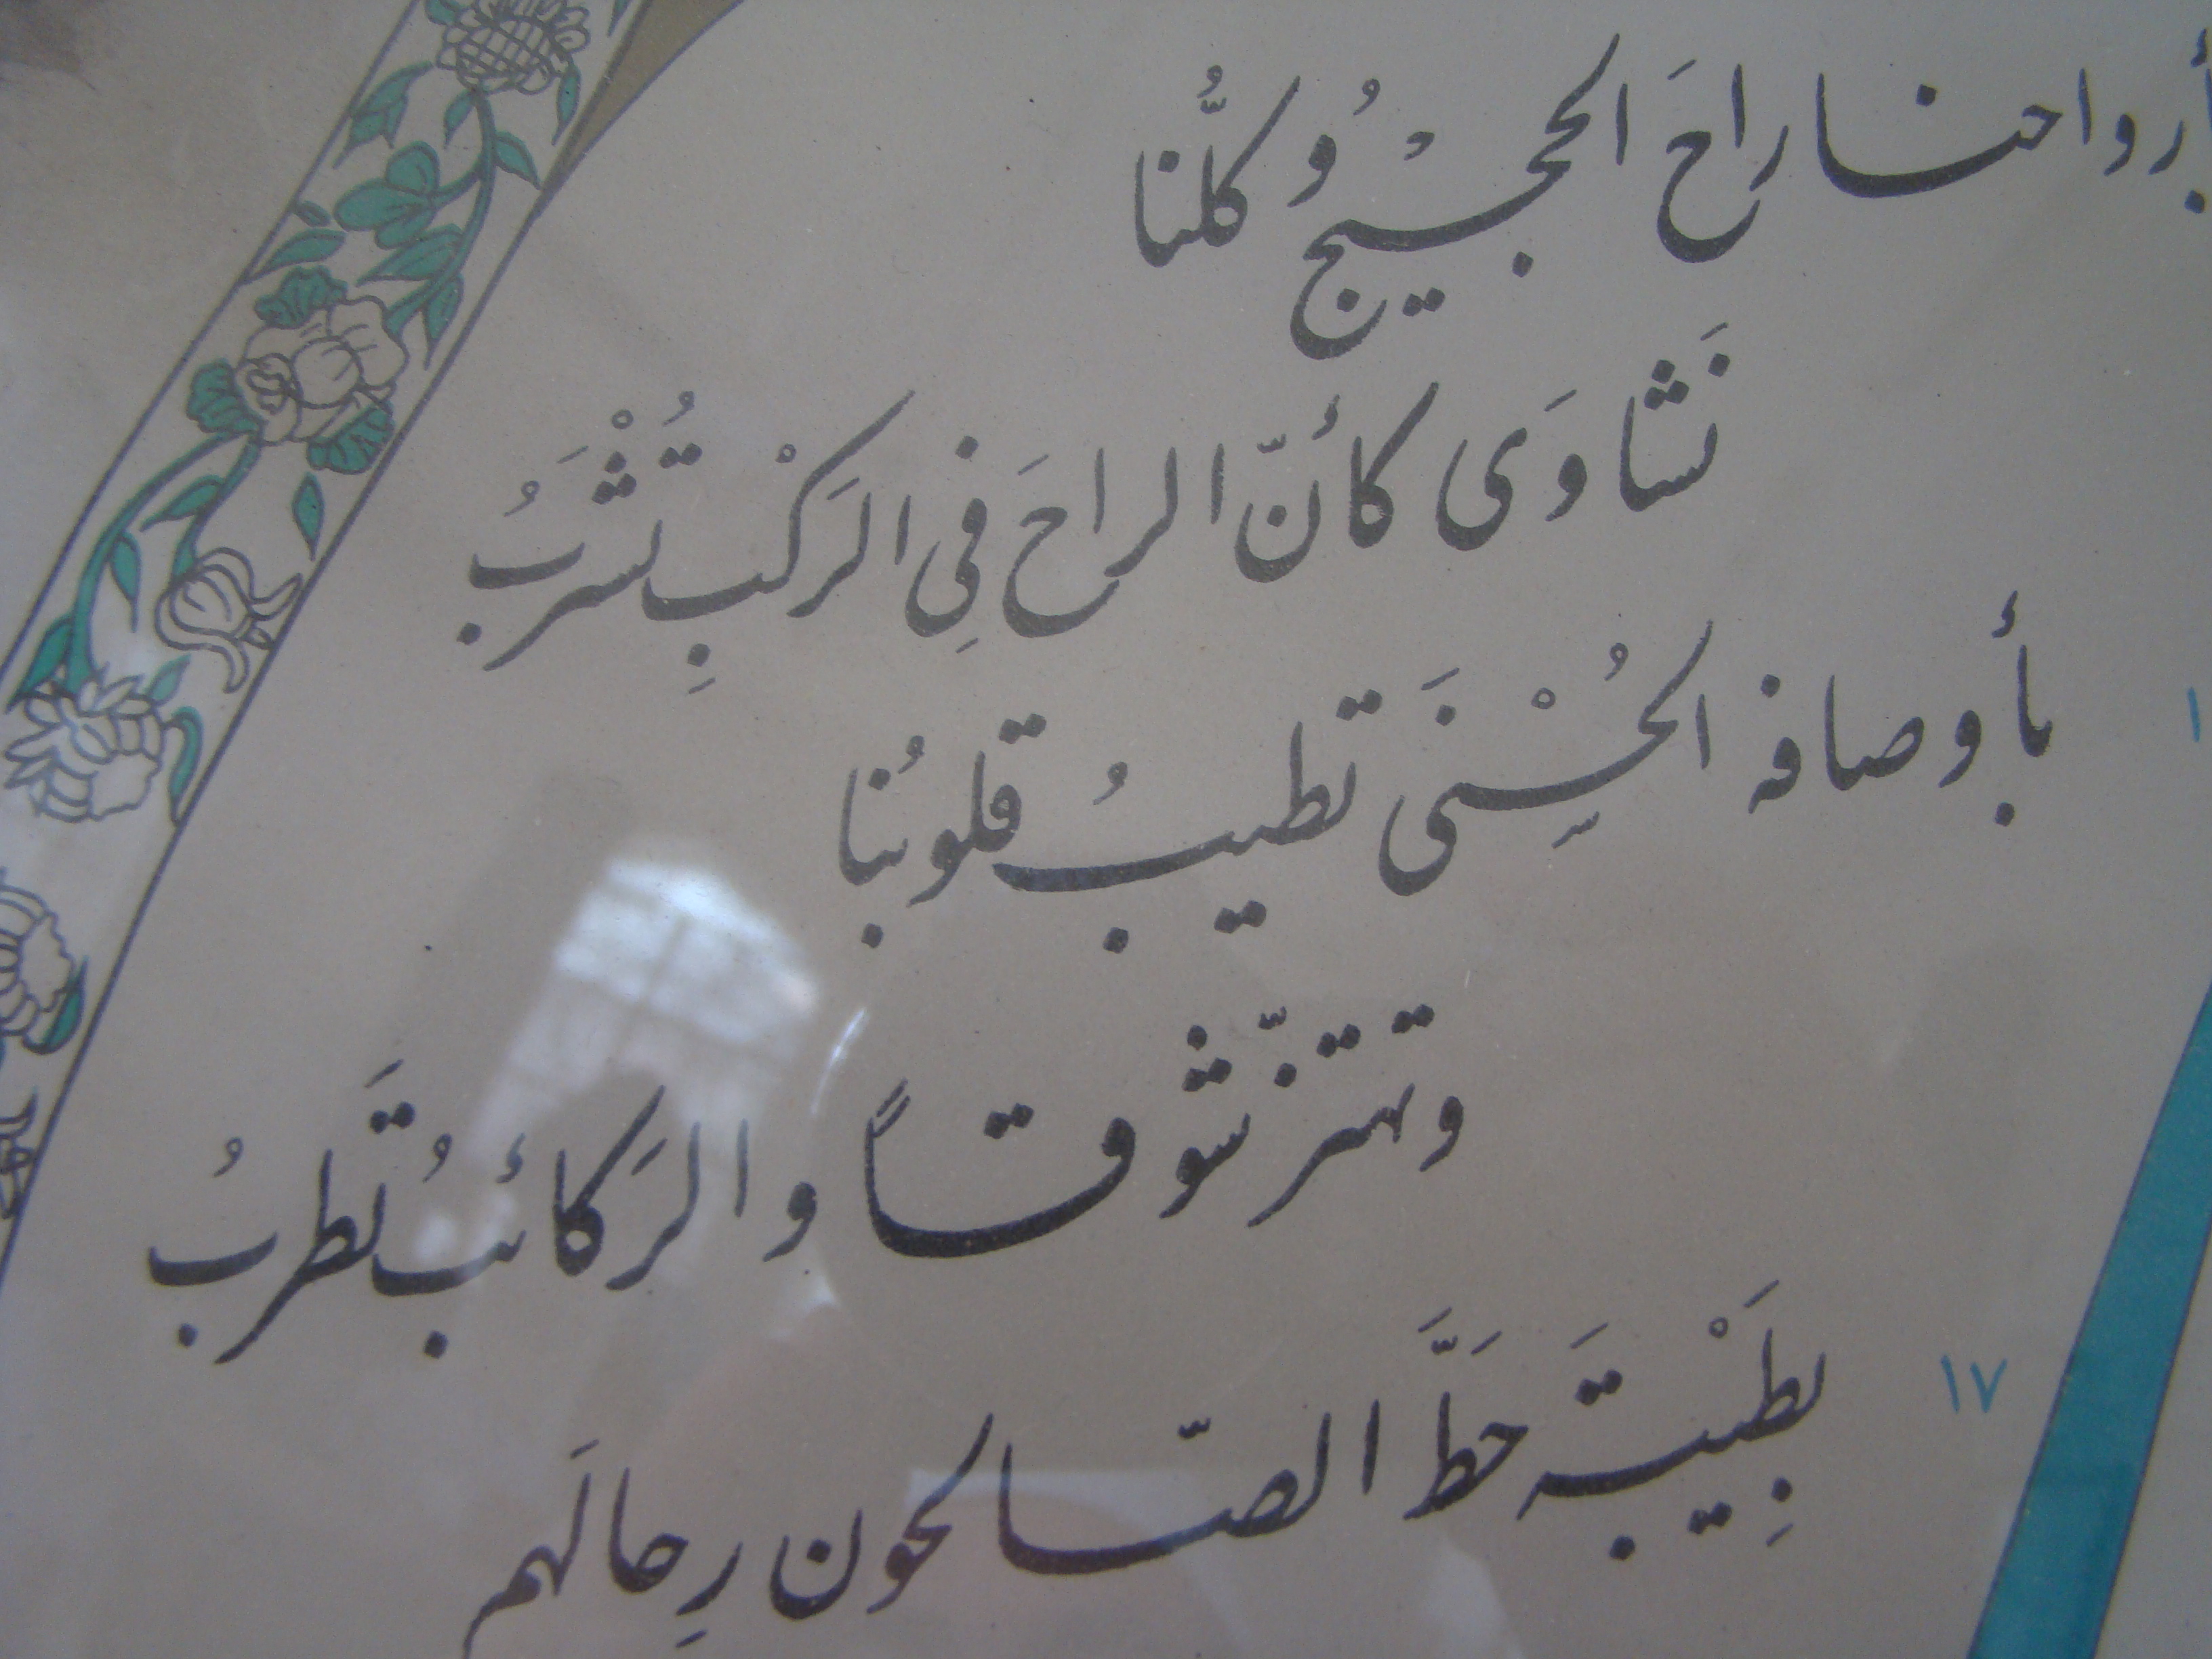 بأرواحنا راحَ الحجيْجُ وُكلُّنا
نَشاوَى كأنّ الراحَ فِي الرَكْبِ تُشْرَبُ
بأوصافه الحُسْنَى تطيبُ قلوبُنا
وتهتزّ شوقاً والرَكائبُ تَطربُ
١٧ بِطَيْبَةَ حَطَّ الصّالحون رِحالَهم